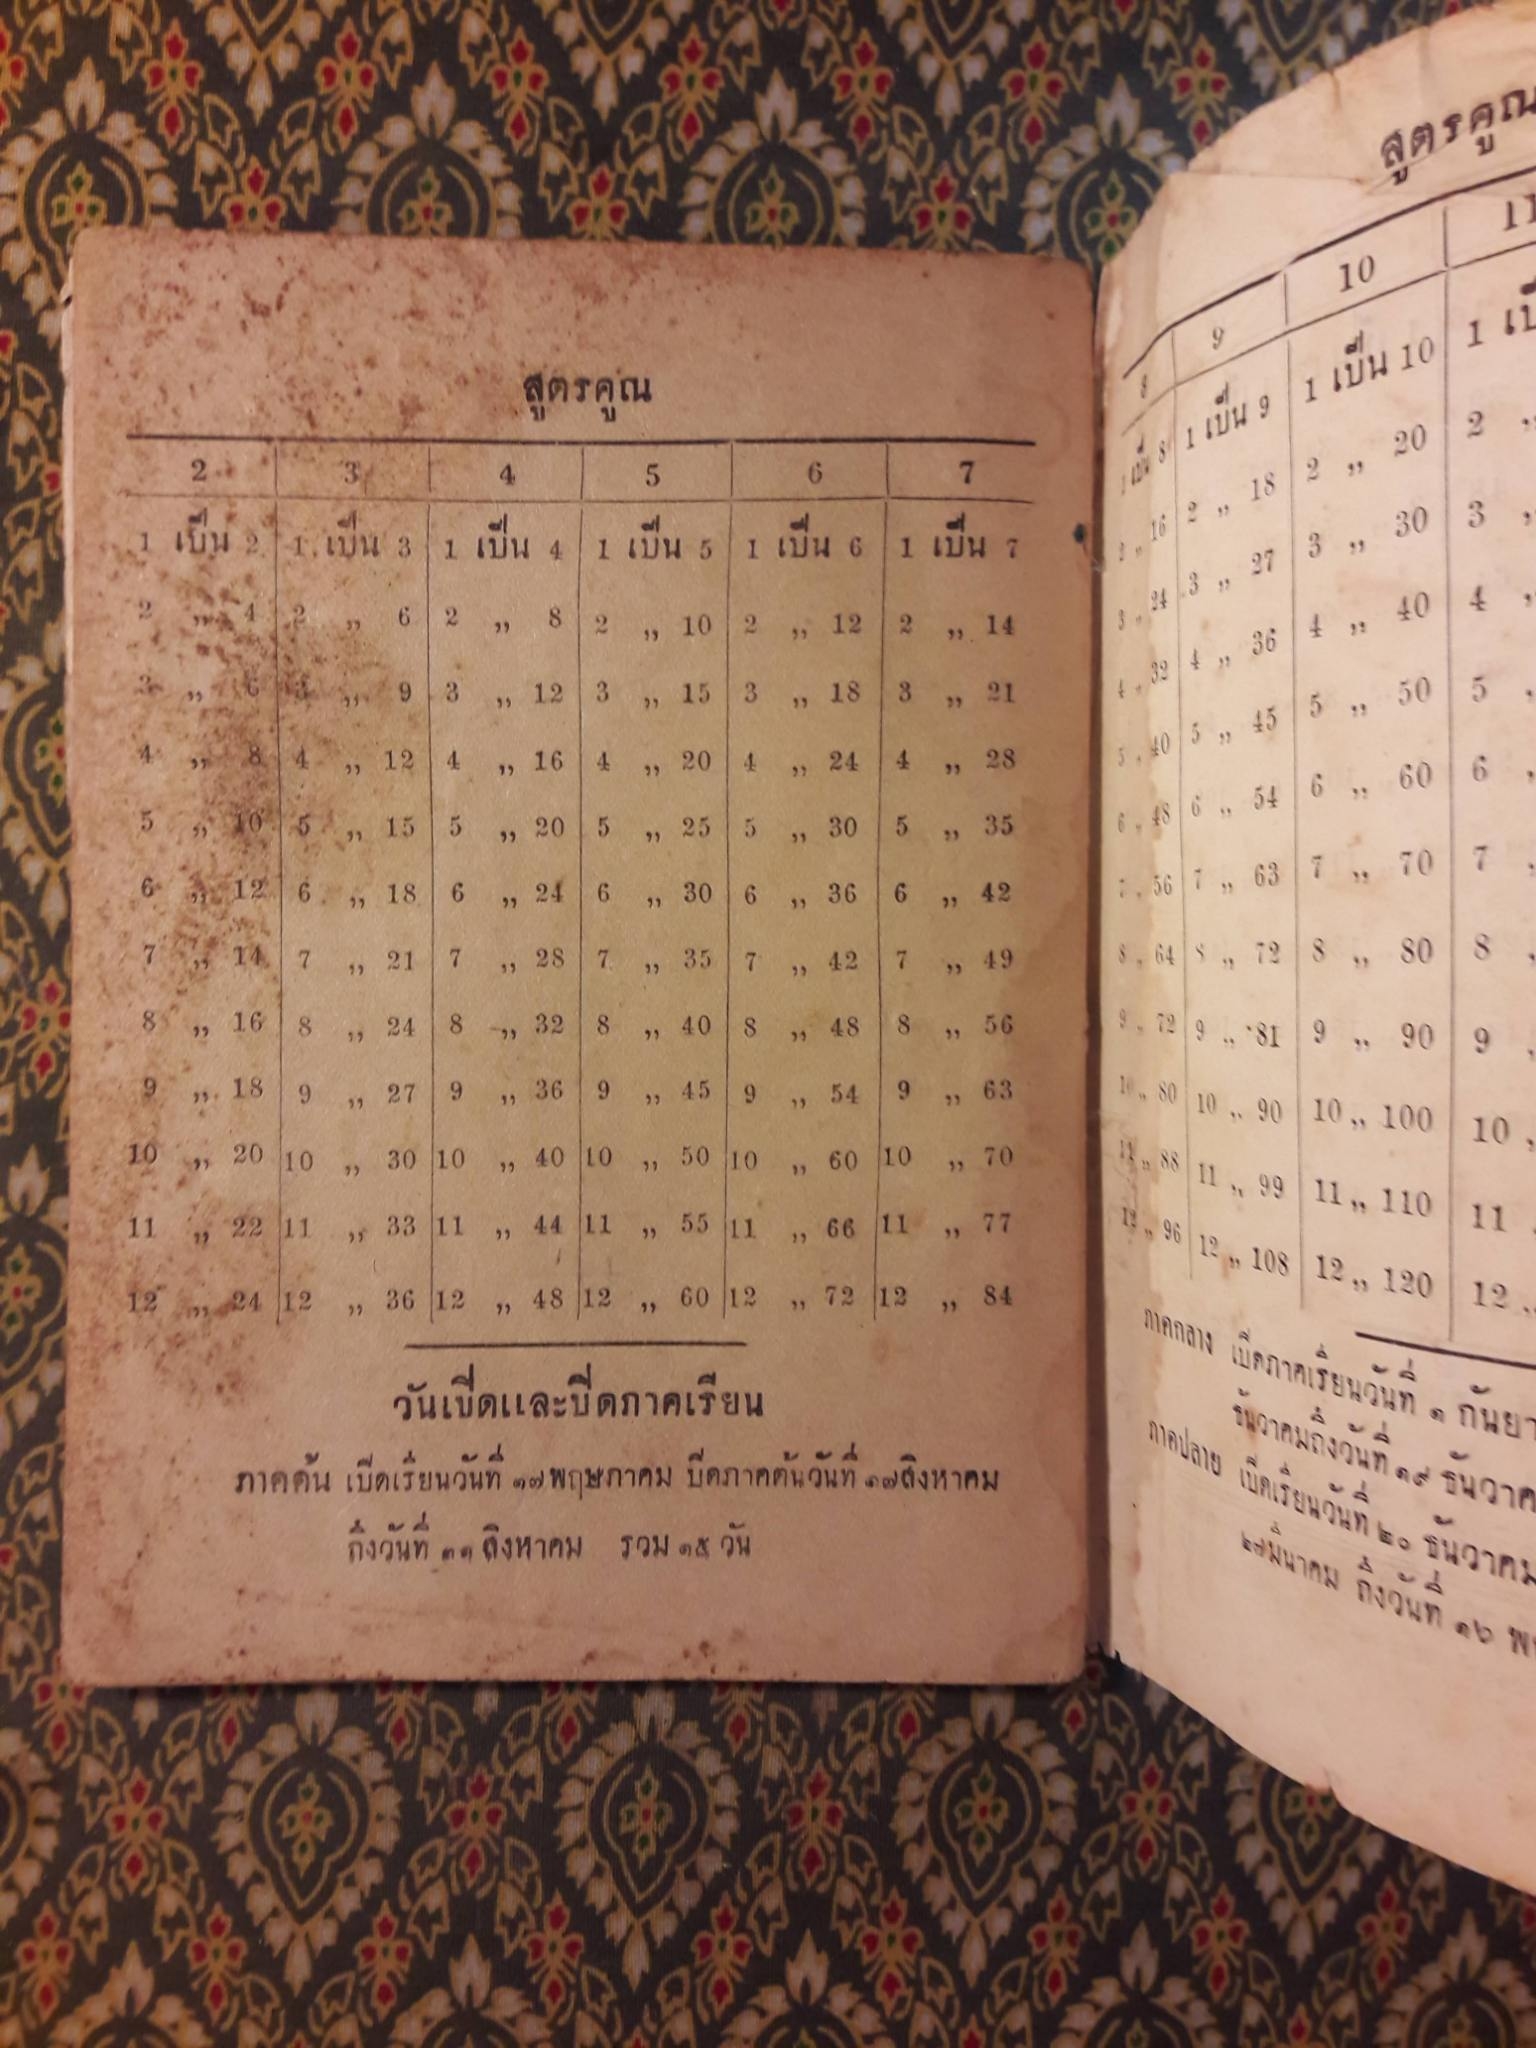 สูตรคูณ
2 3 4 5 6 7
1 เป็น 2 1 เป็น 3 1 เป็น 4 1 เป็น 5 1 เป็น 6 1 เป็น 7
2 ,, 4 2 ,, 6 2 ,, 8 2 ,, 10 2 ,, 12 2 ,, 14
3 ,, 6 3 ,, 9 3 ,, 12 3 ,, 15 3 ,, 18 3 ,, 21
4 ,, 8 4 ,, 12 4 ,, 16 4 ,, 20 4 ,, 24 4 ,, 28
5 ,, 10 5 ,, 15 5 ,, 20 5 ,, 25 5 ,, 30 5 ,, 35
6 ,, 12 6 ,, 18 6 ,, 24 6 ,, 30 6 ,, 36 6 ,, 42
7 ,, 14 7 ,, 21 7 ,, 28 7 ,, 35 7 ,, 42 7 ,, 49
8 ,, 16 8 ,, 24 8 ,, 32 8 ,, 40 8 ,, 48 8 ,, 56
9 ,, 18 9 ,, 27 9 ,, 36 9 ,, 45 9 ,, 54 9 ,, 63
10 ,, 20 10 ,, 30 10 ,, 40 10 ,, 50 10 ,, 60 10 ,, 70
11 ,, 22 11 ,, 33 11 ,, 44 11 ,, 55 11 ,, 66 11 ,, 77
12 ,, 24 12 ,, 36 12 ,, 48 12 ,, 60 12 ,, 72 12 ,, 84
วันเปิดและปิดภาคเรียน
ภาคต้น เปิดเรียนวันที่ ๑๗ พฤษภาคม ปิดภาคต้นวันที่ ๑๗ สิงหาคม
ถึงวันที่ ๓๑ สิงหาคม รวม ๑๕ วัน
สูตรคูณ
8 9 10 11
1 เป็น 8 1 เป็น 9 1 เป็น 10 1
2 ,, 16 2 ,, 18 2 ,, 20 2 ,,
3 ,, 24 3 ,, 27 3 ,, 30 3 ,,
4 ,, 32 4 ,, 36 4 ,, 40 4 ,,
5 ,, 40 5 ,, 45 5 ,, 50 5 ,,
6 ,, 48 6 ,, 54 6 ,, 60 6 ,,
7 ,, 56 7 ,, 63 7 ,, 70 7 ,,
8 ,, 64 8 ,, 72 8 ,, 80 8 ,,
9 ,, 72 9 ,, 81 9 ,, 90 9 ,,
10 ,, 80 10 ,, 90 10 ,, 100 10 ,,
11 ,, 88 11 ,, 99 11 ,, 110 11
12 ,, 96 12 ,, 108 12 ,, 120 12 ,,
ภาคกลาง เปิดภาคเรียนวันที่ ๑
ธันวาคมถึงวันที่ ๑๙
ภาคปลาย เปิดเรียนวันที่ ๒๐ ธันวาคม
๒๗ มีนาคม ถึงวันที่ ๑๖